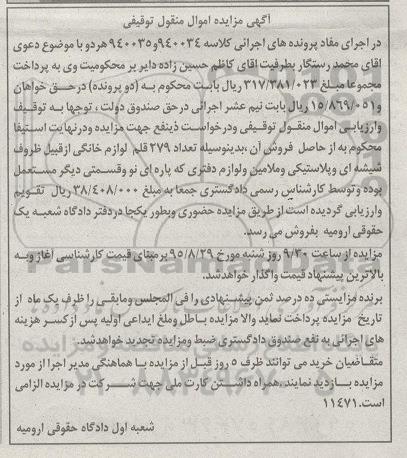 آگهی مزایده اموال منقول توقیفی
در اجرای مفاد پرونده های اجرائی کلاسه ۹۴۰۰۳۴و۹۴۰۰۳۵ هردو با موضوع دعوی
اقای محمد رستگار بطرفیت اقای کاظم حسین زاده دایر بر محکومیت وی به پرداخت
مجموعا مبلغ ۳۱۷/۳۸۱/۰۲۳ ریال بابت محکوم به (دو پرونده) درحق خواهان
و ۱۵/۸۶۹/۰۵۱ ریال بابت نیم عشر اجرائی درحق صندوق دولت ، توجها به توقیف
وارزیابی اموال منقول توقیفی ودرخواست ذینفع جهت مزایده ودرنهایت استیفا
محکوم به از حاصل فروش آن ،بدینوسیله تعداد ۲۷۹ قلم لوازم خانگی ازقبیل ظروف
شیشه ای وپلاستیکی وملامین ولوازم دفتری که پاره ای نو وقسمتی دیگر مستعمل
بوده وتوسط کارشناس رسمی دادگستری جمعا به مبلغ ۳۸/۴۰۸/۰۰۰ ریال تقویم
وارزیابی گردیده است از طریق مزایده حضوری وبطور یکجا دردفتر دادگاه شعبه یک
حقوقی ارومیه بفروش می رسد.
مزایده از ساعت ۹/۳۰ روز شنبه مورخ ۹۵/۸/۲۹ برمبنای قیمت کارشناسی آغاز وبه
بالاترین پیشنهاد قیمت واگذار خواهدشد.
برنده مزایستی ده درصد ثمن پیشنهادی را فی المجلس ومابقی را ظرف یک ماه از
تاریخ مزایده پرداخت نماید والا مزایده باطل وملغ ایداعی اولیه پس ازکسر هزینه
های اجرائی به نفع صندوق دادگستری ضبط ومزایده تجدید خواهدشد.
متقاضیان خرید می توانند ظرف ۵ روز قبل از مزایده با هماهنگی مدیر اجرا از مورد
مزایده بازدید نمایند .همراه داشتن کارت ملی جهت شرکت در مزایده الزامی
است.۱۱۴۷۱
شعبه اول دادگاه حقوقی ارومیه
ParsNamadData